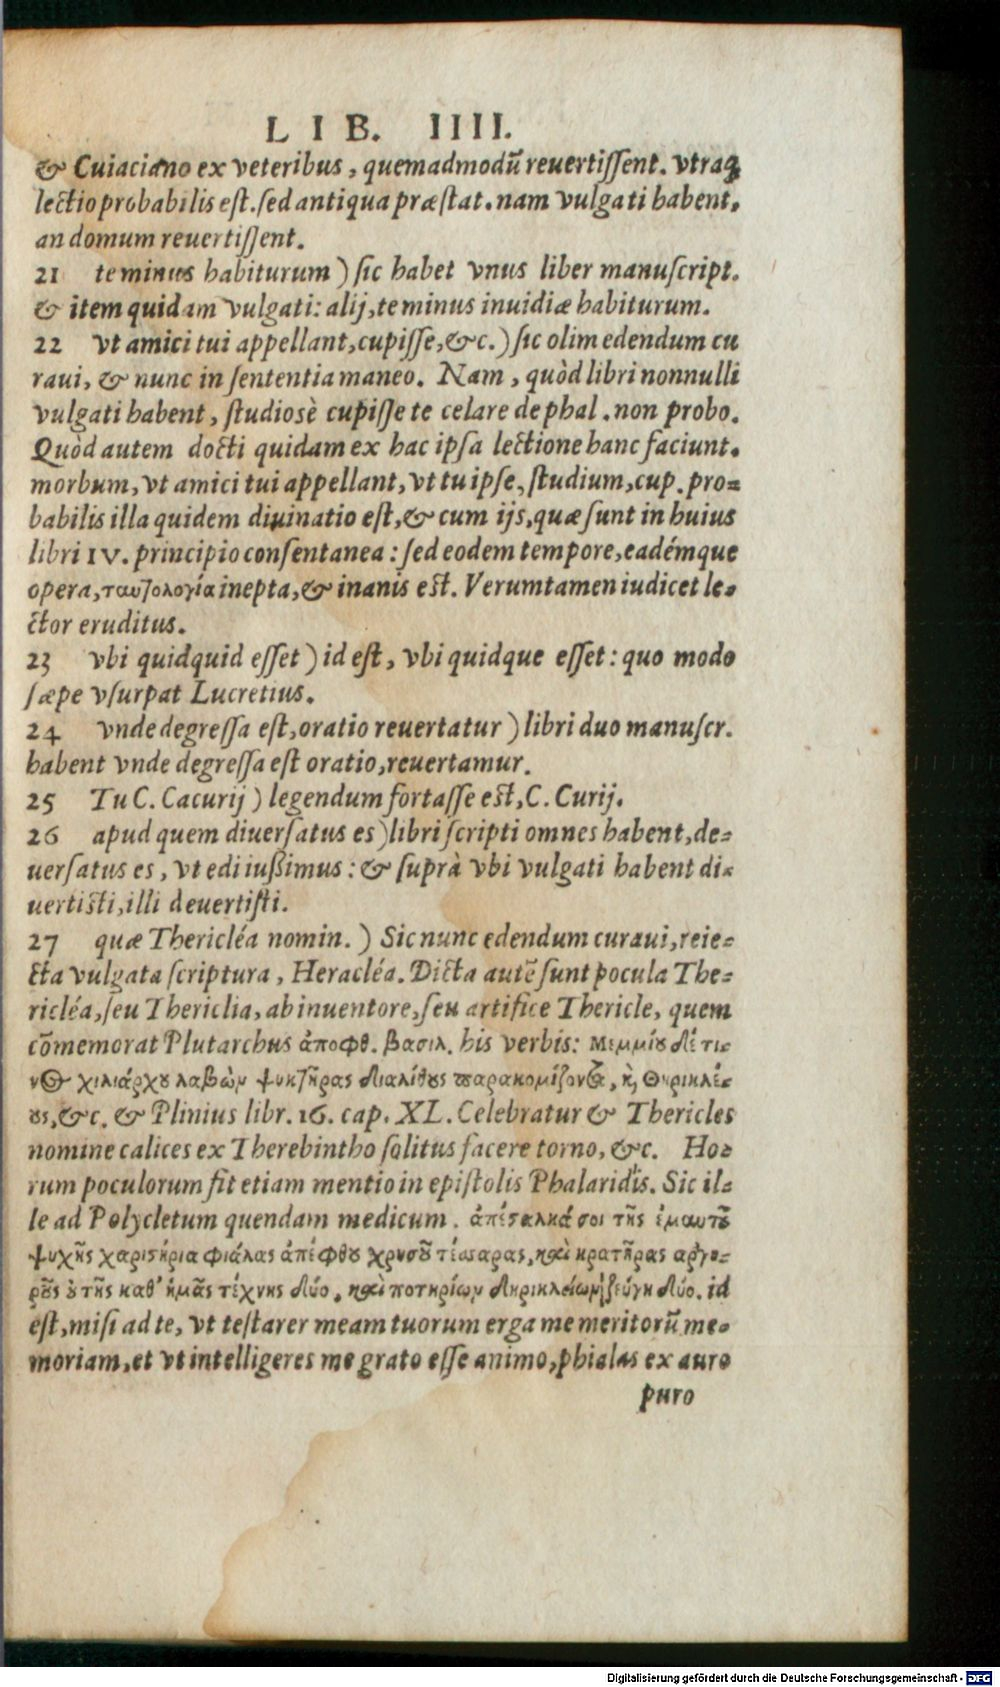 LIB. IIII.
& Cuiaciano ex veteribus, quemadmodũ reuertiſſent. vtraq;
lectio probabilis eſt. ſed antiqua præſtat. nam vulgati habent,
an domum reuertiſſent.
21 te minus habiturum ) ſic habet vnus liber manuſcript.
& item quidam vulgati: alij, te minus inuidiæ habiturum.
22 vt amici tui appellant, cupiſſe, &c. ) ſic olim edendum cu
raui, & nunc in ſententia maneo. Nam, quòd libri nonnulli
vulgati habent, ſtudiosè cupiſſe te celare de phal. non probo.
Quòd autem docti quidam ex hac ipſa lectione hanc faciunt.
morbum, vt amici tui appellant, vt tu ipſe, ſtudium, cup. pro-
babilis illa quidem diuinatio eſt, & cum ijs, quæ ſunt in huius
libri IV. principio conſentanea: ſed eodem tempore, eadémque
opera, ταυτολογία inepta, & inanis eſt. Verumtamen iudicet le-
ctor eruditus.
23 vbi quidquid eſſet ) id eſt, vbi quidque eſſet: quo modo
ſæpe vſurpat Lucretius.
24 vnde degreſſa eſt, oratio reuertatur ) libri duo manuſcr.
habent vnde degreſſa eſt oratio, reuertamur.
25 Tu C. Cacurij ) legendum fortaſſe eſt, C. Curij.
26 apud quem diuerſatus es ) libri ſcripti omnes habent, de-
uerſatus es, vt edi iußimus: & ſuprà vbi vulgati habent di-
uertiſti, illi deuertiſti.
27 quæ Thericléa nomin. ) Sic nunc edendum curaui, reie-
cta vulgata ſcriptura, Heracléa. Dicta autẽ ſunt pocula The-
ricléa, ſeu Thericlia, ab inuentore, ſeu artifice Thericle, quem
cõmemorat Plutarchus ἀποφθ. βασιλ. his verbis: Μεμμίου δέ τι-
νος χιλιάρχου λαβὼν ψυκτῆρας διαλίθους παρακομίζοντος, καὶ Θηρικλεί-
ους, &c. & Plinius libr. 16. cap. XL. Celebratur & Thericles
nomine calices ex Therebintho ſolitus facere torno, &c. Ho-
rum poculorum fit etiam mentio in epiſtolis Phalaridis. Sic il-
le ad Polycletum quendam medicum. ἀπέσταλκά σοι τῆς ἐμαυτοῦ
ψυχῆς χαριστήρια φιάλας ἀπέφθου χρυσοῦ τέσσαρας, καὶ κρατῆρας ἀργυ-
ροῦς οὐ τῆς καθ' ἡμᾶς τέχνης δύο, καὶ ποτηρίων θηρικλείων ζεύγη δύο. id
eſt, miſi ad te, vt teſtarer meam tuorum erga me meritorũ me-
moriam, et vt intelligeres me grato eſſe animo, phialas ex auro
puro
Digitalisierung gefördert durch die Deutsche Forschungsgemeinschaft - DFG